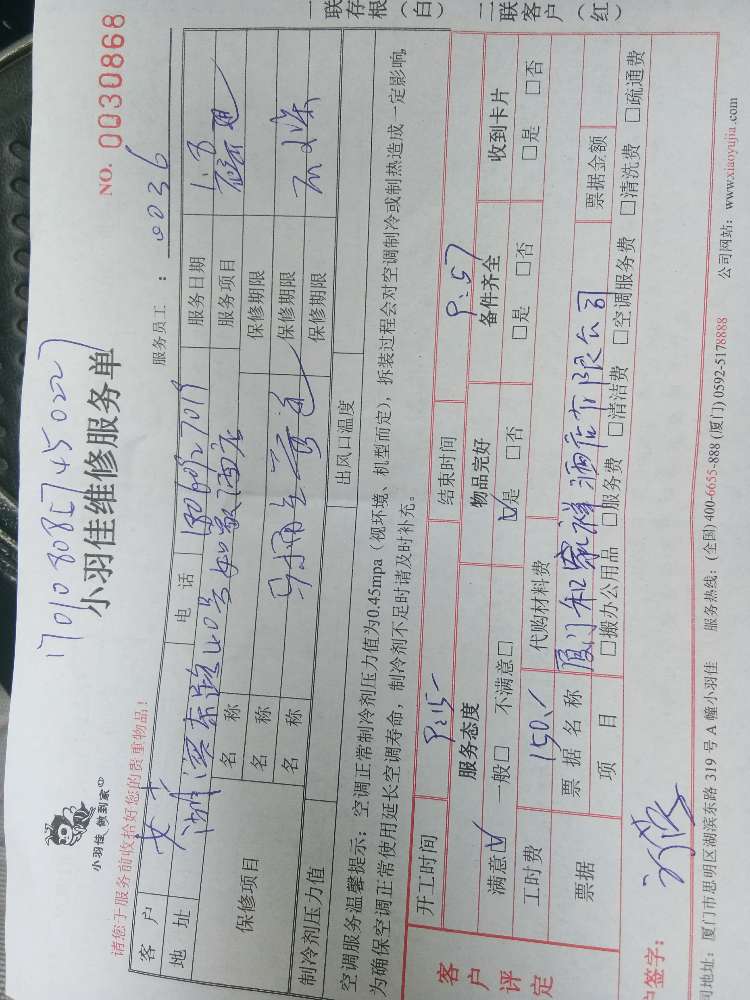 一联存根（白） 二联客户（红）
NO. 0030868
小羽佳 做到家
小羽佳维修服务单
服务员工： 0036
请您于服务前收拾好您的贵重物品！
客户 电话 服务日期 1.8
地址 湖滨东路40号如家酒店 服务项目
保修项目 名称 保修期限
名称 保修期限
名称 保修期限
制冷剂压力值 出风口温度
空调服务温馨提示：空调正常制冷剂压力值为0.45mpa（视环境、机型而定），拆装过程会对空调制冷或制热造成一定影响，
为确保空调正常使用延长空调寿命，制冷剂不足时请及时补充。
客户评定
开工时间 结束时间
服务态度 物品完好 备件齐全 收到卡片
满意☑ 一般□ 不满意□ ☑是 □否 □是 □否 □是 □否
工时费 150 代购材料费
票据 票据名称 厦门和家祥酒店有限公司 票据金额
项目 □搬办公用品 □服务费 □清洁费 □空调服务费 □清洗费 □疏通费
户签字：
司地址：厦门市思明区湖滨东路 319 号 A 幢小羽佳 服务热线：(全国) 400-6655-888 (厦门) 0592-5178888 公司网站：www.xiaoyujia.com